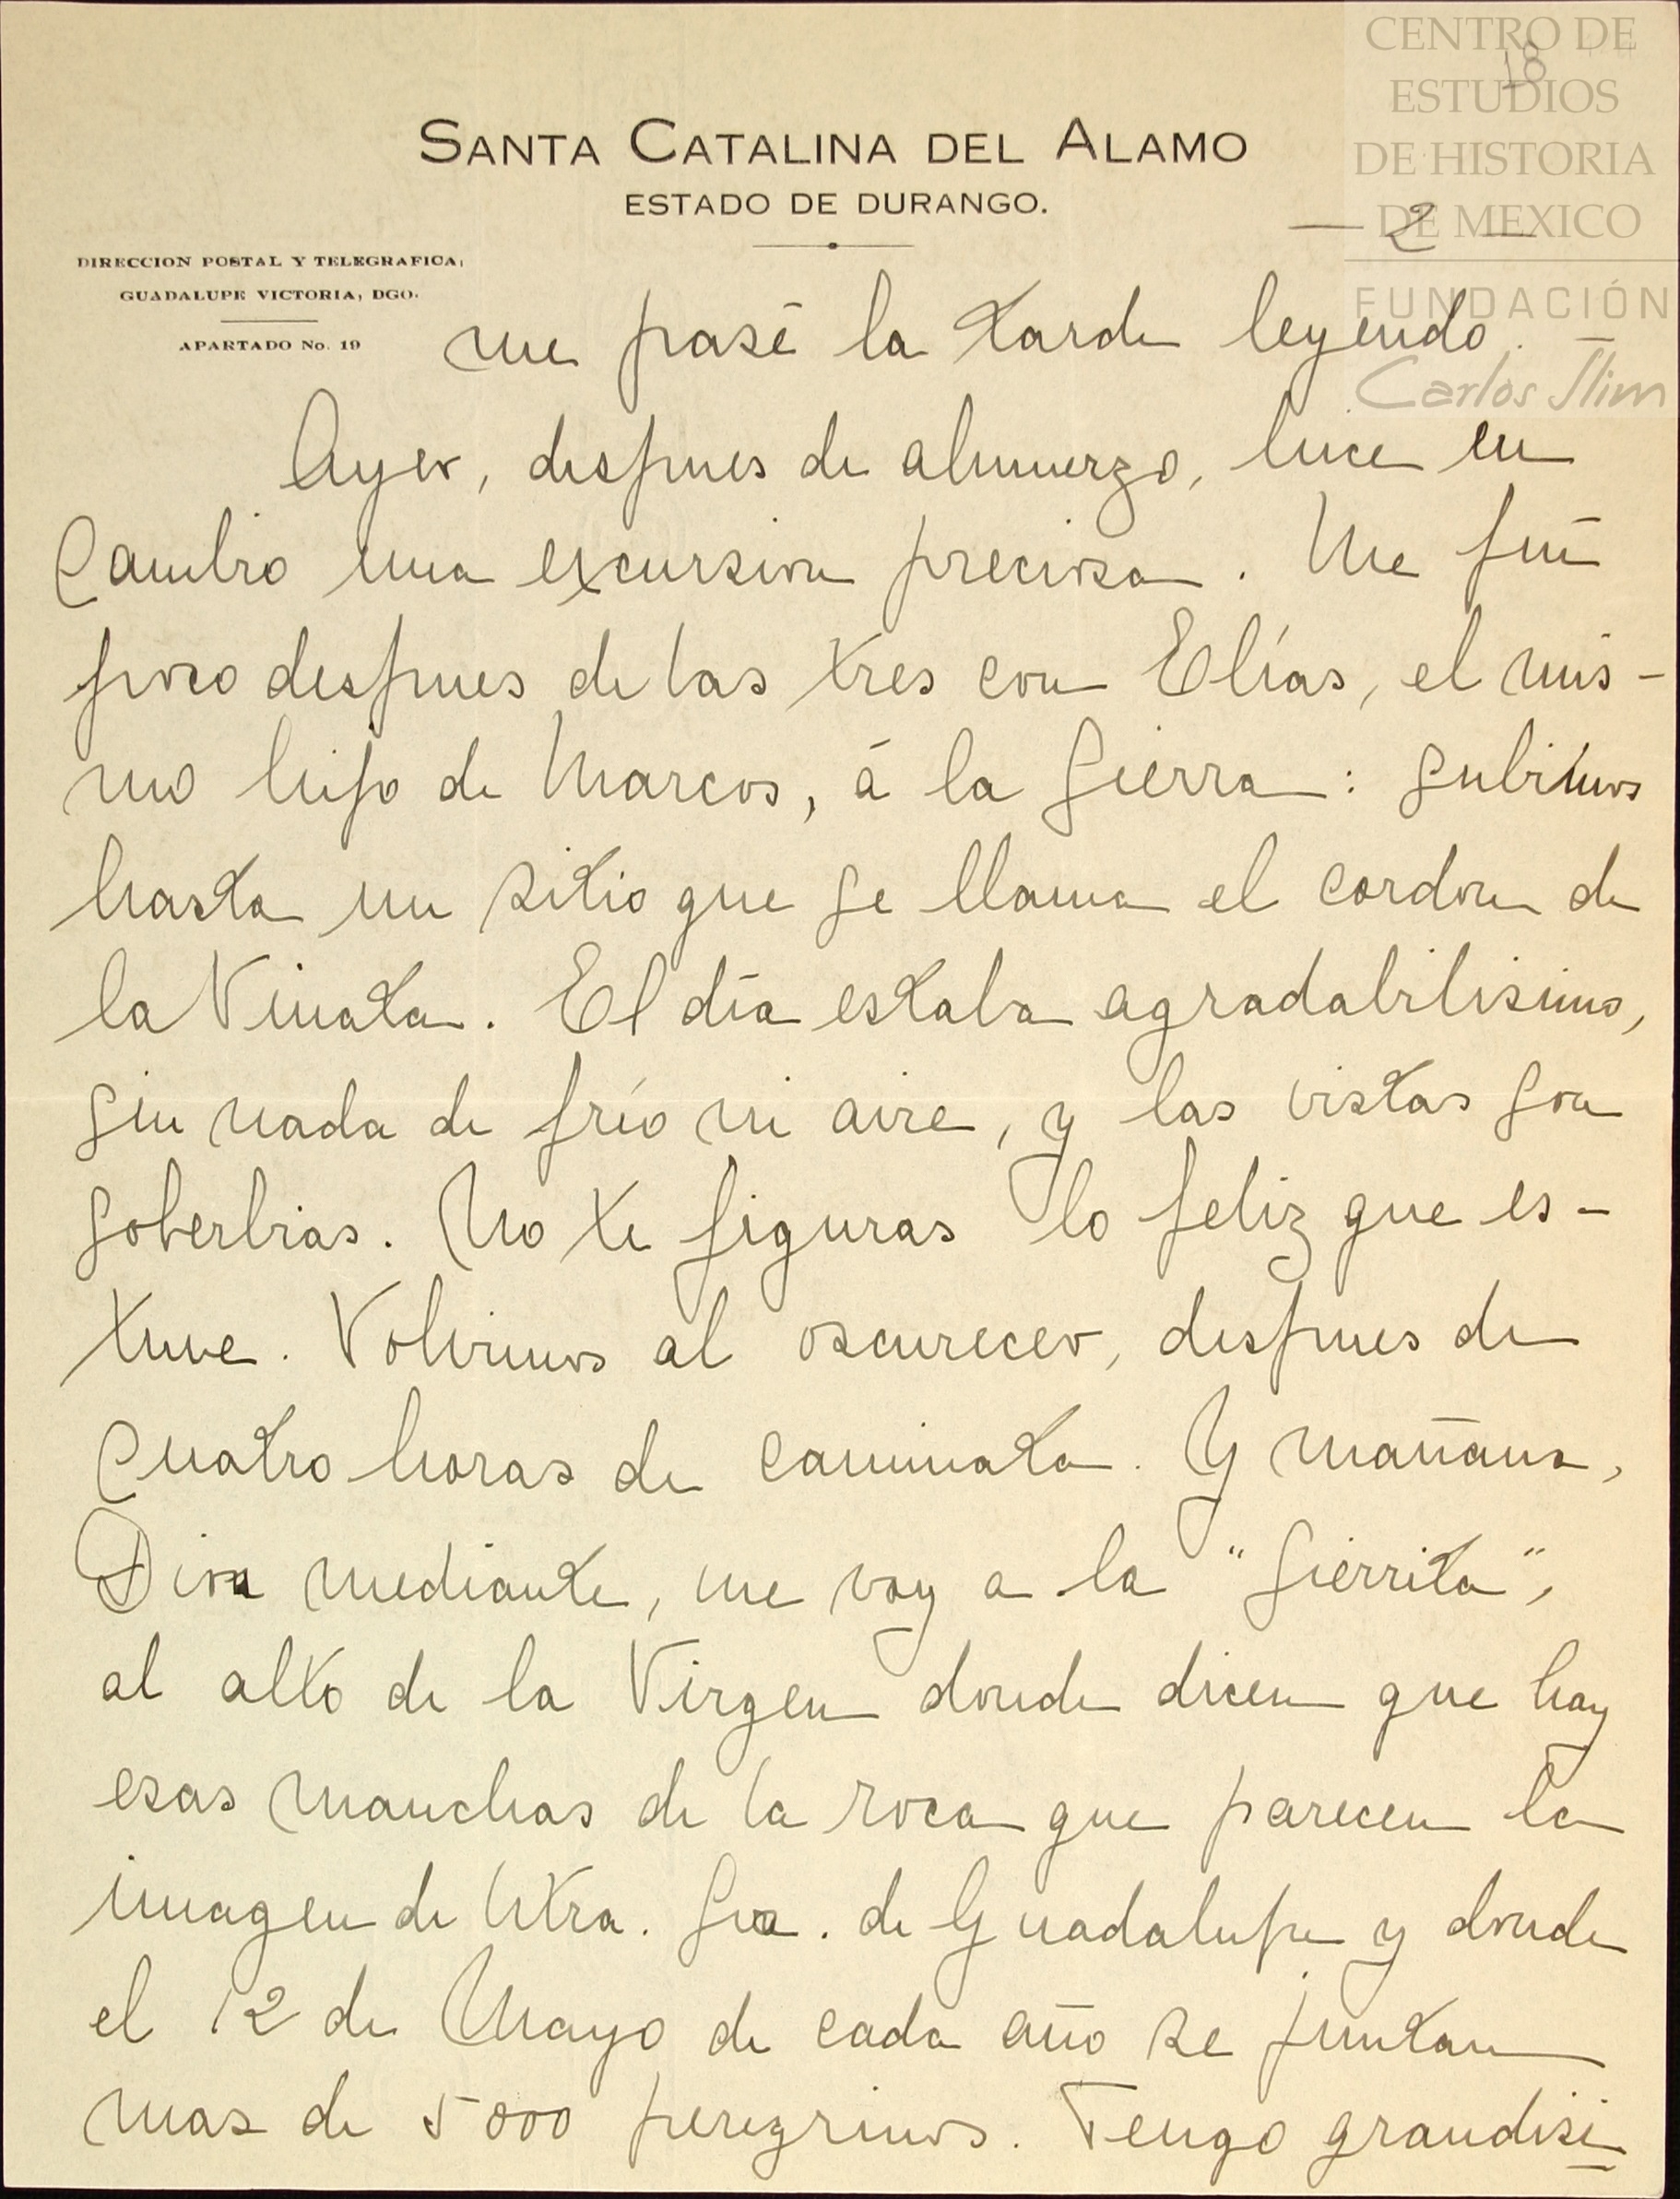 CENTRO DE
ESTUDIOS
DE HISTORIA
DE MEXICO
FUNDACIÓN
Carlos Slim
18
SANTA CATALINA DEL ALAMO
ESTADO DE DURANGO.
— 2 —
DIRECCION POSTAL Y TELEGRAFICA,
GUADALUPE VICTORIA, DGO.
APARTADO No. 19
me pasé la tarde leyendo. —
Ayer, despues de almuerzo, hice en
Cambio una excursion preciosa. Me fuí
poco despues de las tres con Elías, el mis-
mo hijo de Marcos, á la Sierra: Subimos
hasta un sitio que se llama el cordon de
la Vinata. El día estaba agradabilisimo,
sin nada de frío ni aire, y las vistas son
soberbias. No te figuras lo feliz que es-
tuve. Volvimos al oscurecer, despues de
Cuatro horas de caminata. Y mañana,
Dios mediante, me voy a la "Sierrita",
al alto de la Virgen donde dicen que hay
esas manchas de la roca que parecen la
imagen de Ntra. Sra. de Guadalupe y donde
el 12 de Mayo de cada año se juntan
mas de 5000 peregrinos. Tengo grandisi-